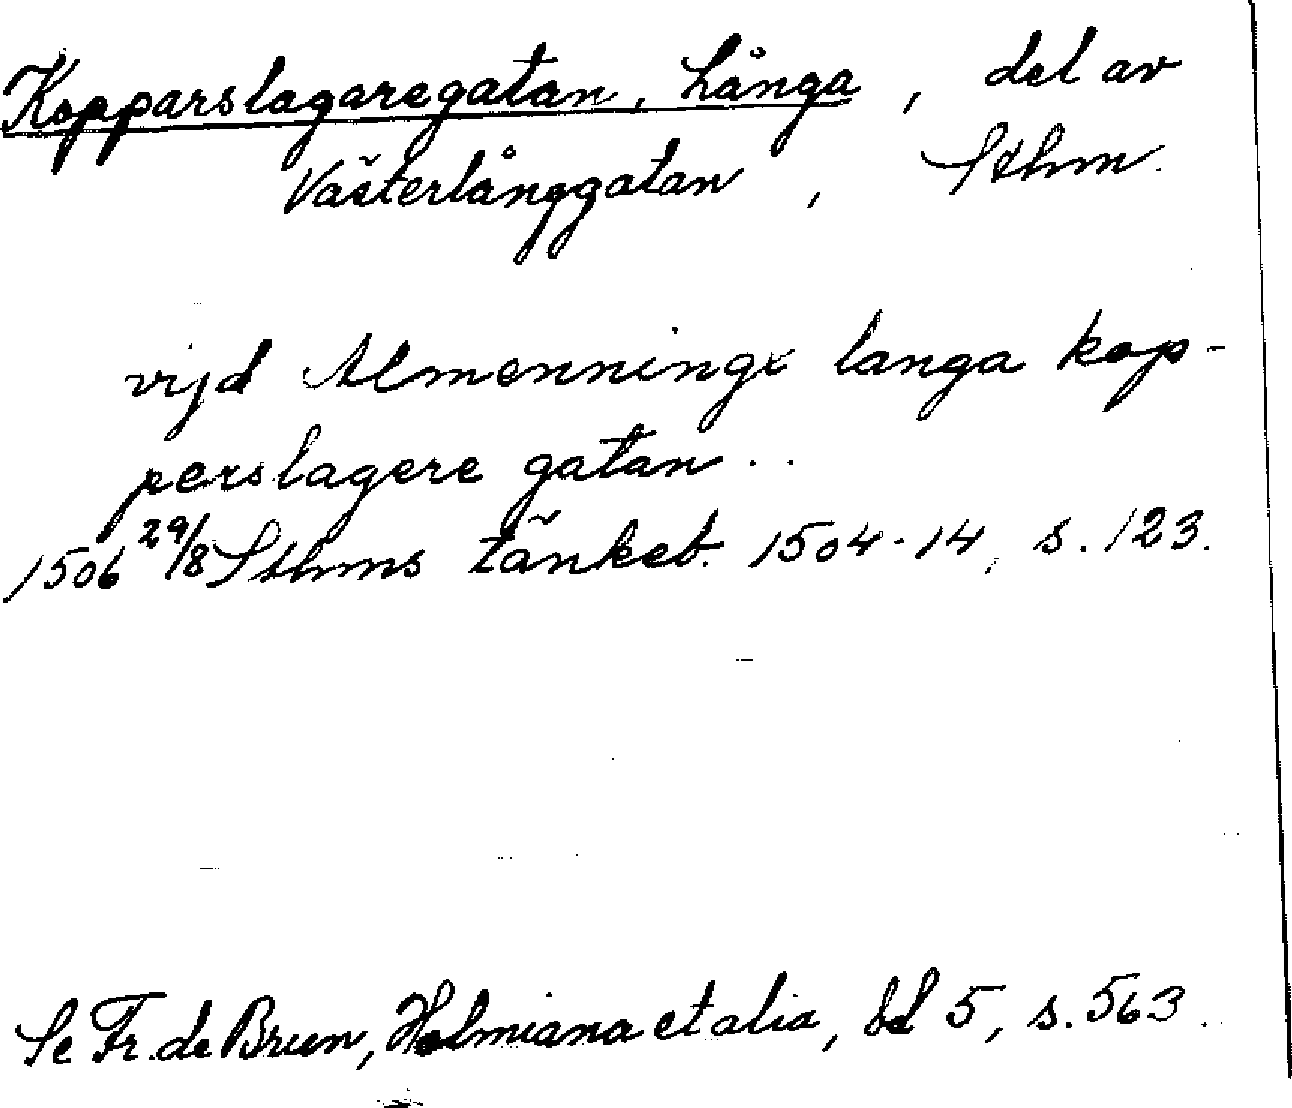 Kopparslagaregatan, Långa, del av
Västerlånggatan, Sthm.
vijd Almenninge langa kop-
perslagere gatan..
1506 29/8 Sthms tänkeb. 1504-14, s. 123.
Se Fr. de Brun, Holmiana et alia, bd 5, s. 563.